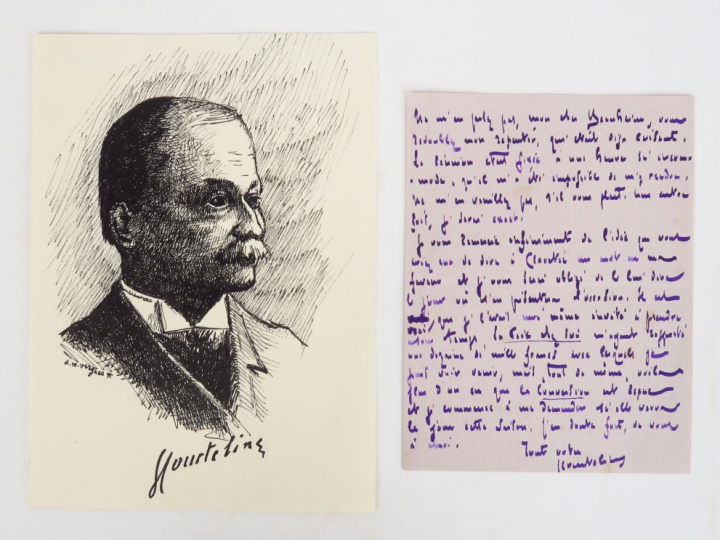 Courteline
Ne m'en mon cher Bernheim, vous
mon repentir, qui était déjà cuisant.
La réunion était fixée à une heure si incom-
mode, qu'il m'a été impossible de m'y rendre.
Ne m'en veuillez pas, s'il vous plaît. Une autre
fois, je serai exact.
Je vous remercie infiniment de l'idée que vous
avez eue de dire à Claretie un mot en ma
faveur et je vous serai obligé de le lui dire
le jour où l'occasion. Il est
que je l'avais moi même invité à prendre
son temps, la Paix chez soi m'ayant rapporté
une dizaine de mille francs avec lesquels je
voir venir, mais tout de même, voilà
un an que la Conversion est reçue
et je commence à me demander si elle verra
le jour cette saison. J'en doute fort, de vous
à moi.
Tout votre
Courteline